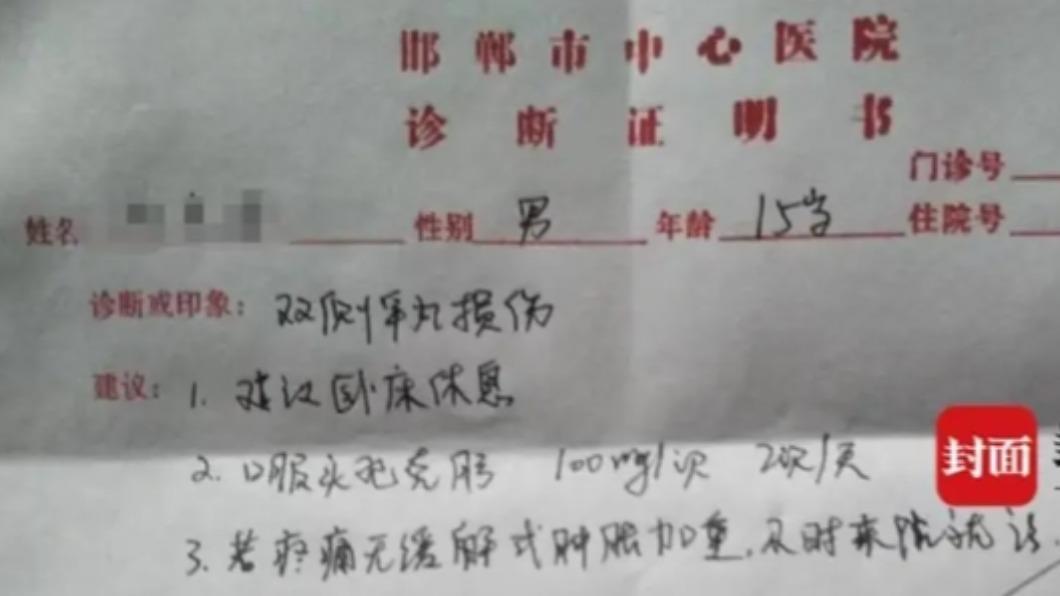 邯郸市中心医院
诊断证明书
门诊号
姓名 性别 男 年龄 15岁 住院号
诊断或印象: 双侧睾丸损伤
建议: 1. 建议卧床休息
2. 口服头孢克肟 100mg/次 2次/天
封面
3. 若疼痛无缓解或肿胀加重,及时来院就诊.